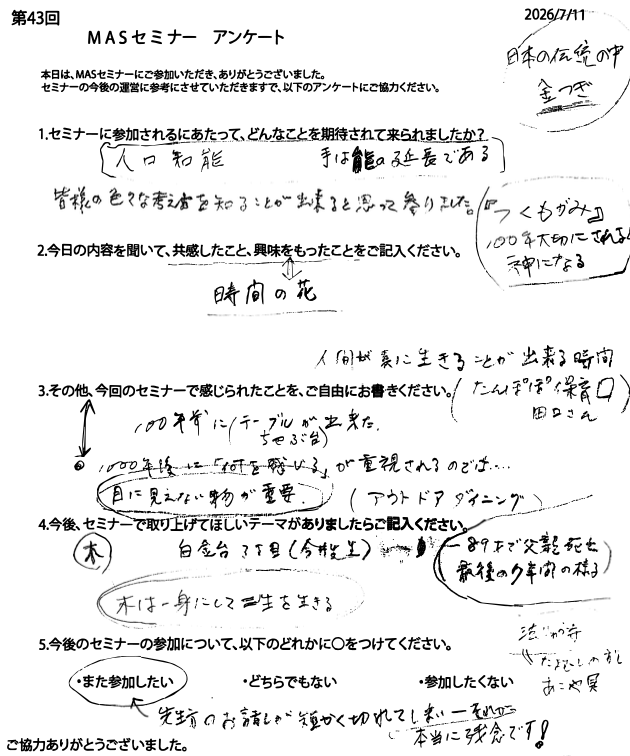 第43回
2026/7/11
MASセミナー アンケート
日本の伝統の中
金つぎ
本日は、MASセミナーにご参加いただき、ありがとうございました。
セミナーの今後の運営に参考にさせていただきますで、以下のアンケートにご協力ください。
1.セミナーに参加されるにあたって、どんなことを期待されて来られましたか?
人口知能 手は能の延長である
皆様の色々な考え方を知ることが出来ると思って参りました。
『つくもがみ』
100年大切にされる
神になる
2.今日の内容を聞いて、共感したこと、興味をもったことをご記入ください。
時間の花
人間が真に生きることが出来る時間
3.その他、今回のセミナーで感じられたことを、ご自由にお書きください。
(たんぽぽ保育口
田口さん
100年前に(テーブルが出来た。
ちゃぶ台)
1000年後に「何を感じる」が重視されるのでは…
目に見えない物が重要。 (アウトドアダイニング)
4.今後、セミナーで取り上げてほしいテーマがありましたらご記入ください。
木 白金台 3丁目(今井先生)
89才で父親死去
最後の
木は一身にして二生を生きる
5.今後のセミナーの参加について、以下のどれかに〇をつけてください。
・また参加したい ・どちらでもない ・参加したくない
あこや貝
先生方のお話しが短かく切れてしまい
本当に残念です!
ご協力ありがとうございました。